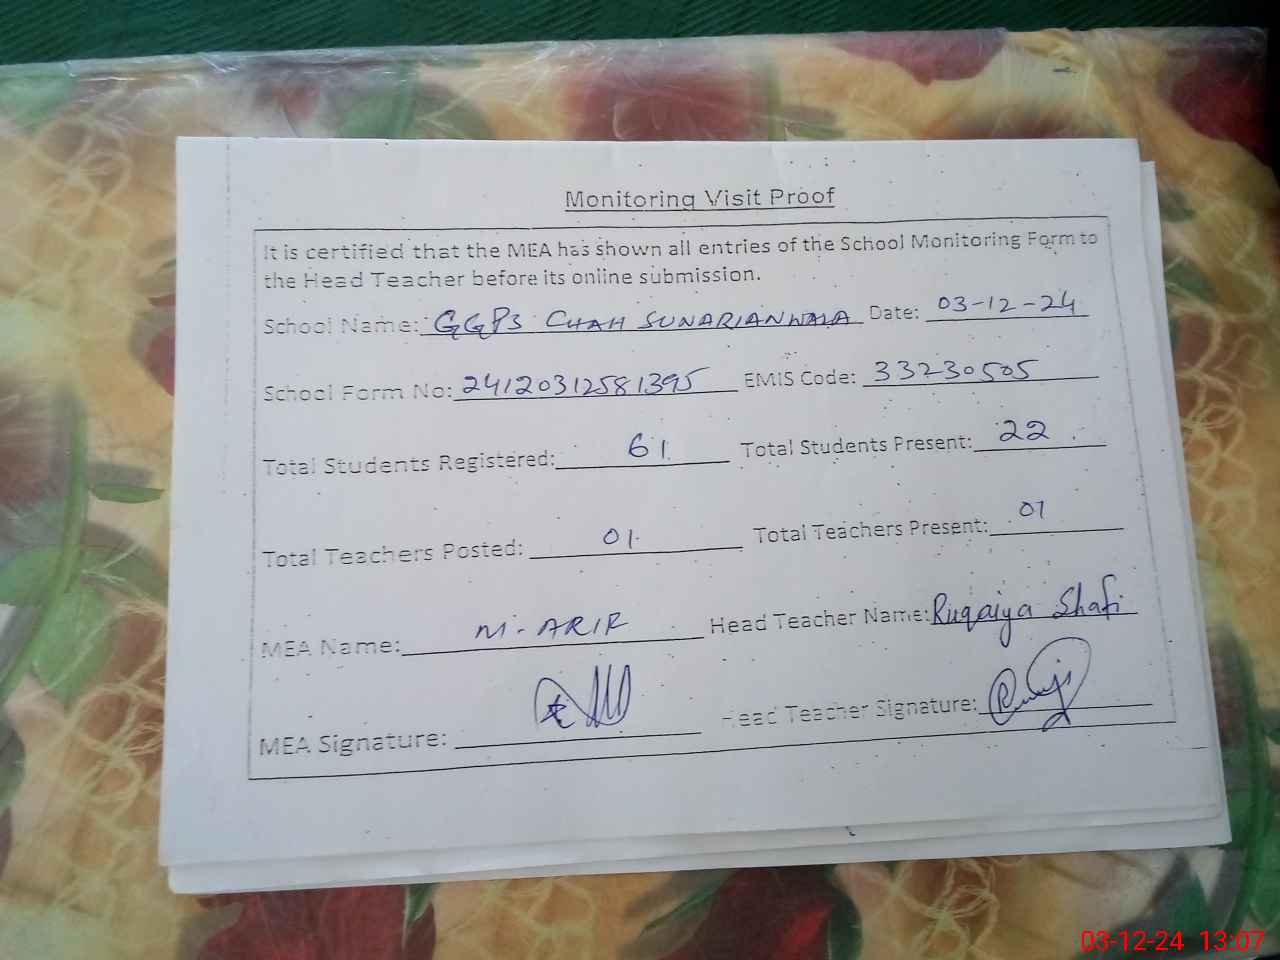 Monitoring Visit Proof
It is certified that the MEA has shown all entries of the School Monitoring Form to
the Head Teacher before its online submission.
School Name: GGPS CHAH SUNARIANWALA Date: 03-12-24
School Form No: 24120312581395 EMIS Code: 33230505
Total Students Registered: 61 Total Students Present: 22
Total Teachers Posted: 01 Total Teachers Present: 01
MEA Name: M. ARIF Head Teacher Name: Ruqaiya Shafi
MEA Signature: Head Teacher Signature:
03-12-24 13:07